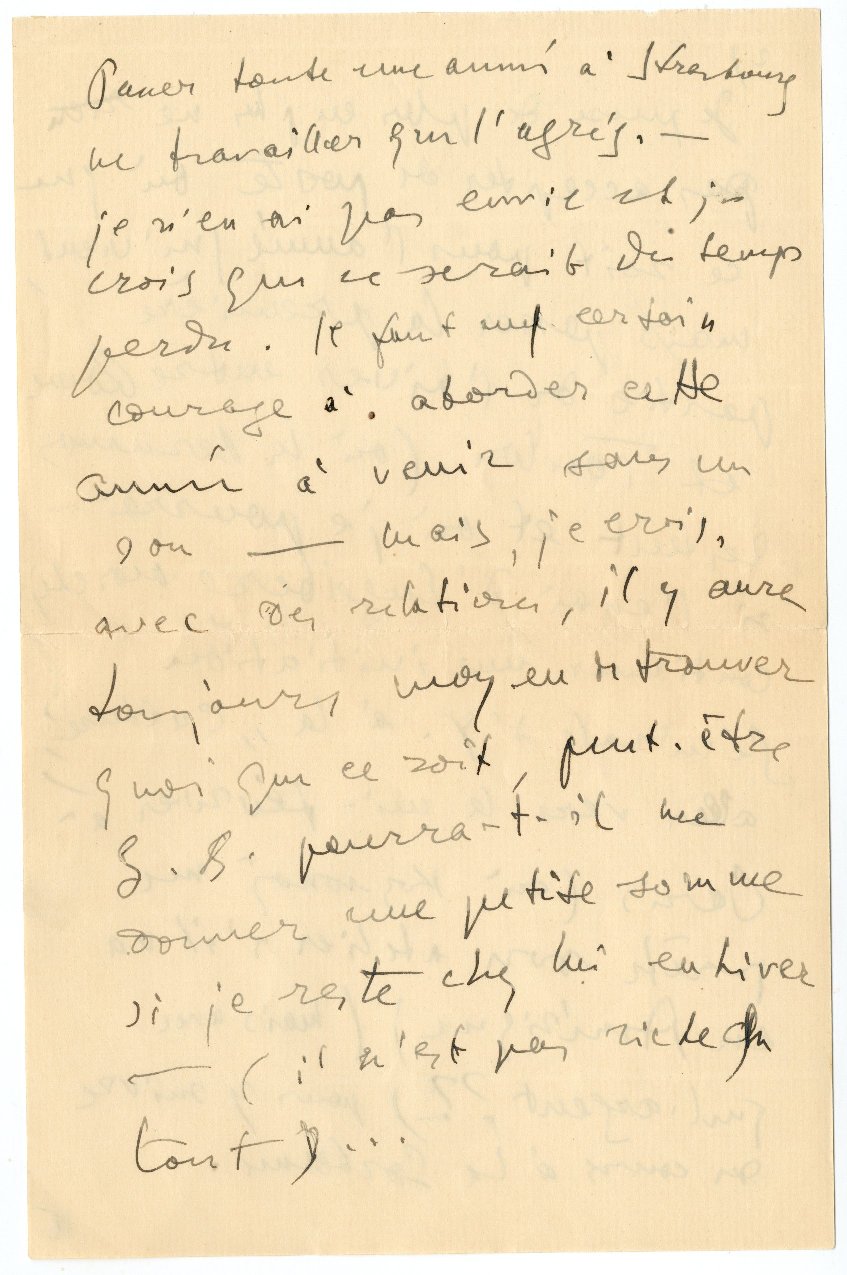 Passer toute une année à Strasbourg
ne travailler que l'agrég. —
je n'en ai pas envie et je
crois que ce serait du temps
perdu. Il faut un certain
courage à aborder cette
année à venir sans un
sou — mais, je crois,
avec des relations, il y aura
toujours moyen de trouver
quoi que ce soit, peut-être
G. B. pourra-t-il me
donner une petite somme
si je reste chez lui en hiver
— (il n'est pas riche du
tout)...